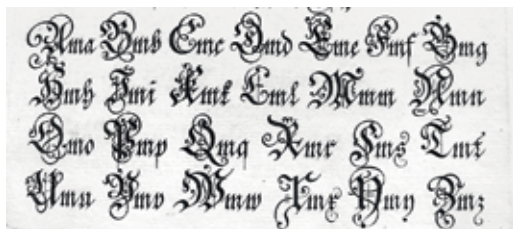 Ama Bmb Cmc Dmd Eme Fmf Gmg
Hmh Imi Kmk Lml Mmm Nmn
Omo Pmp Qmq Rmr Sms Tmt
Umu Vmv Wmw Xmx Ymy Zmz